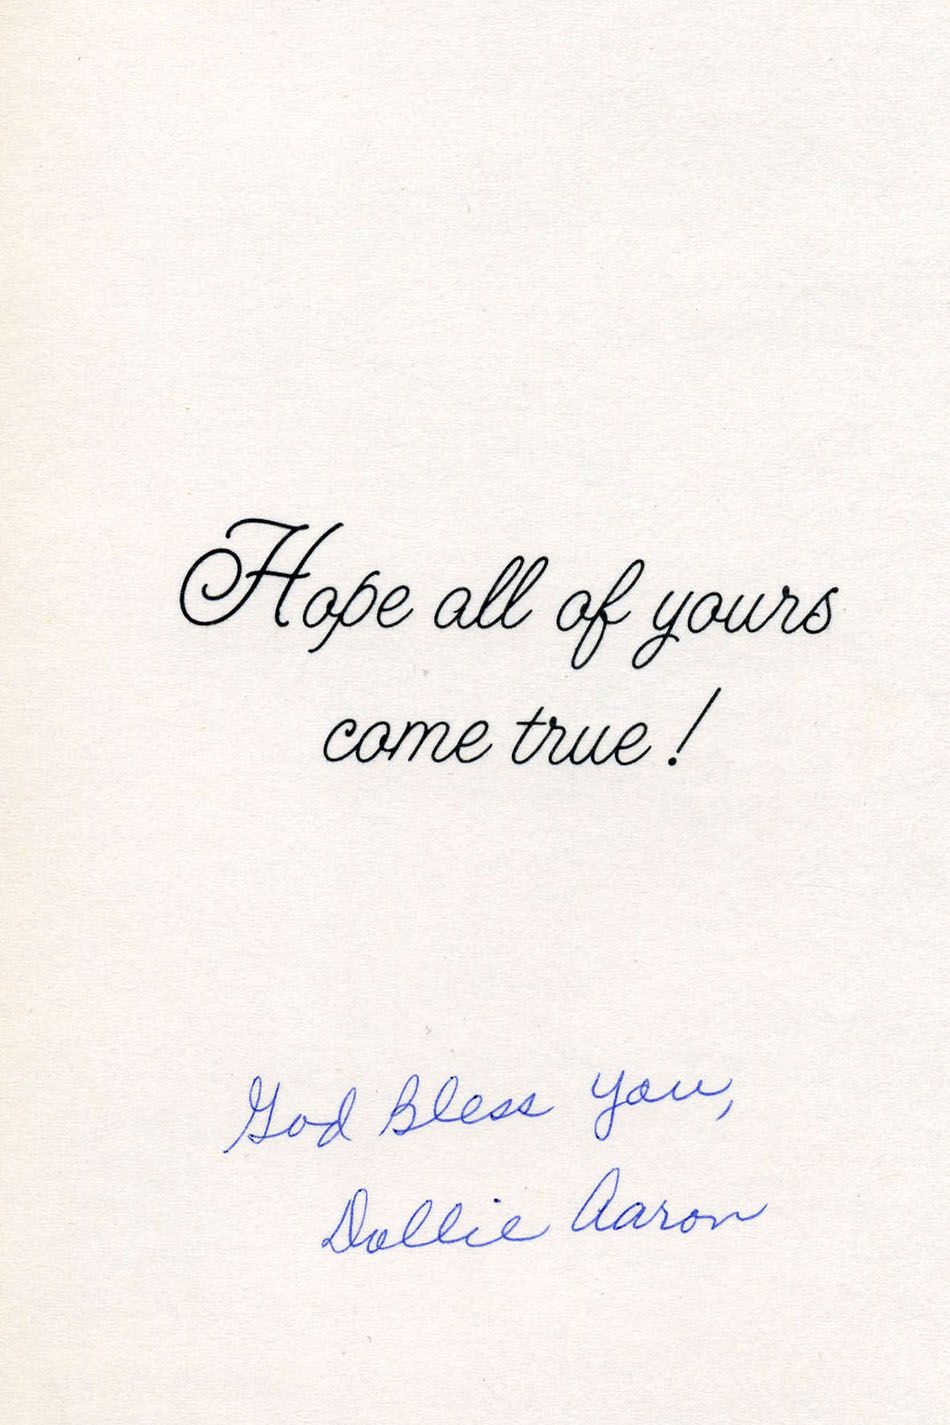 Hope all of yours
come true!
God Bless You,
Dollie Aaron